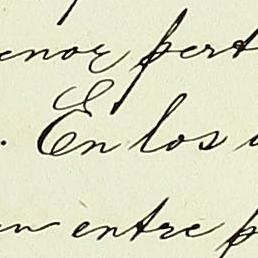 enor pert
. En los
en entre p